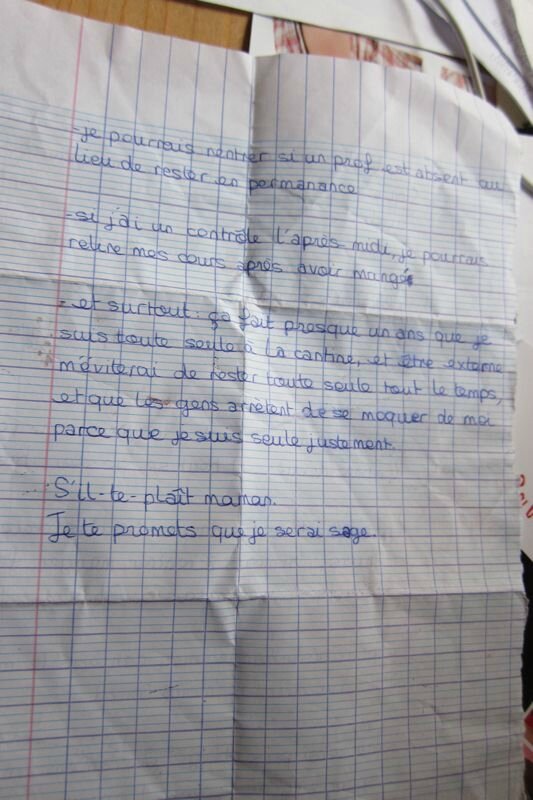 -je pourrais rentrer si un prof est absent au
lieu de rester en permanance
-si j'ai un contrôle l'après-midi, je pourrais
relire mes cours après avoir mangé
- et surtout : ça fait presque un ans que je
suis toute seule à la cantine, et être externe
m'éviterai de rester toute seule tout le temps,
et que les gens arrêtent de se moquer de moi
parce que je suis seule justement.
S'il-te-plaît maman.
Je te promets que je serai sage.